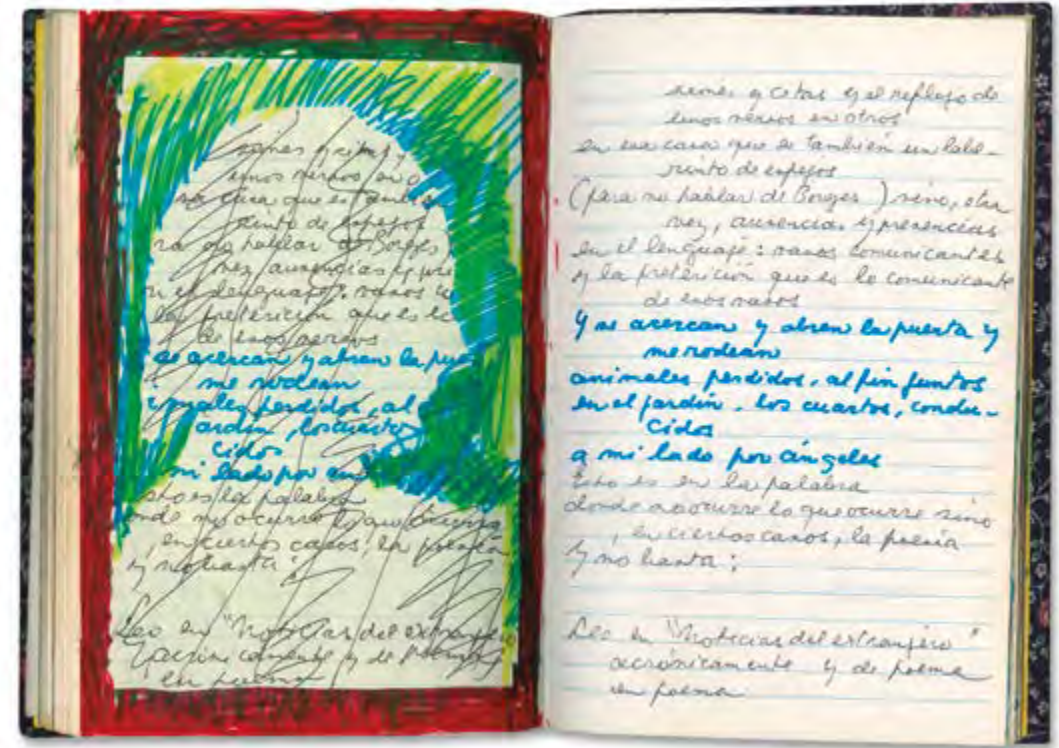 y nos y
unos nervios en o
na casa que es també
rinto de espejos
ra no hablar de Borges
vez, ausencias y pre
n el lenguaje: vasos c
la preterición que es lo
de esos
se acercan y abren la pue
me rodean
males perdidos, al
ardín, los cuartos
cidos
mi lado por án
sto es la palabra
onde no ocurre lo que ocurre
, en ciertos casos, la poesía
y no basta:
Leo en "Noticias del extranjero
acrónicamente y de poema
en poema
y citas y el reflejo de
unos nervios en otros
en esa casa que es también un labe-
rinto de espejos
(para no hablar de Borges) sino, otra
vez, ausencias y presencias
en el lenguaje: vasos comunicantes
y la preterición que es lo comunicante
de esos vasos
Y se acercan y abren la puerta y
me rodean
animales perdidos, al fin juntos
en el jardín, los cuartos, condu-
cidos
a mi lado por ángeles
Esto es en la palabra
donde no ocurre lo que ocurre sino
, en ciertos casos, la poesía
y no basta:
Leo en "Noticias del extranjero"
acrónicamente y de poema
en poema